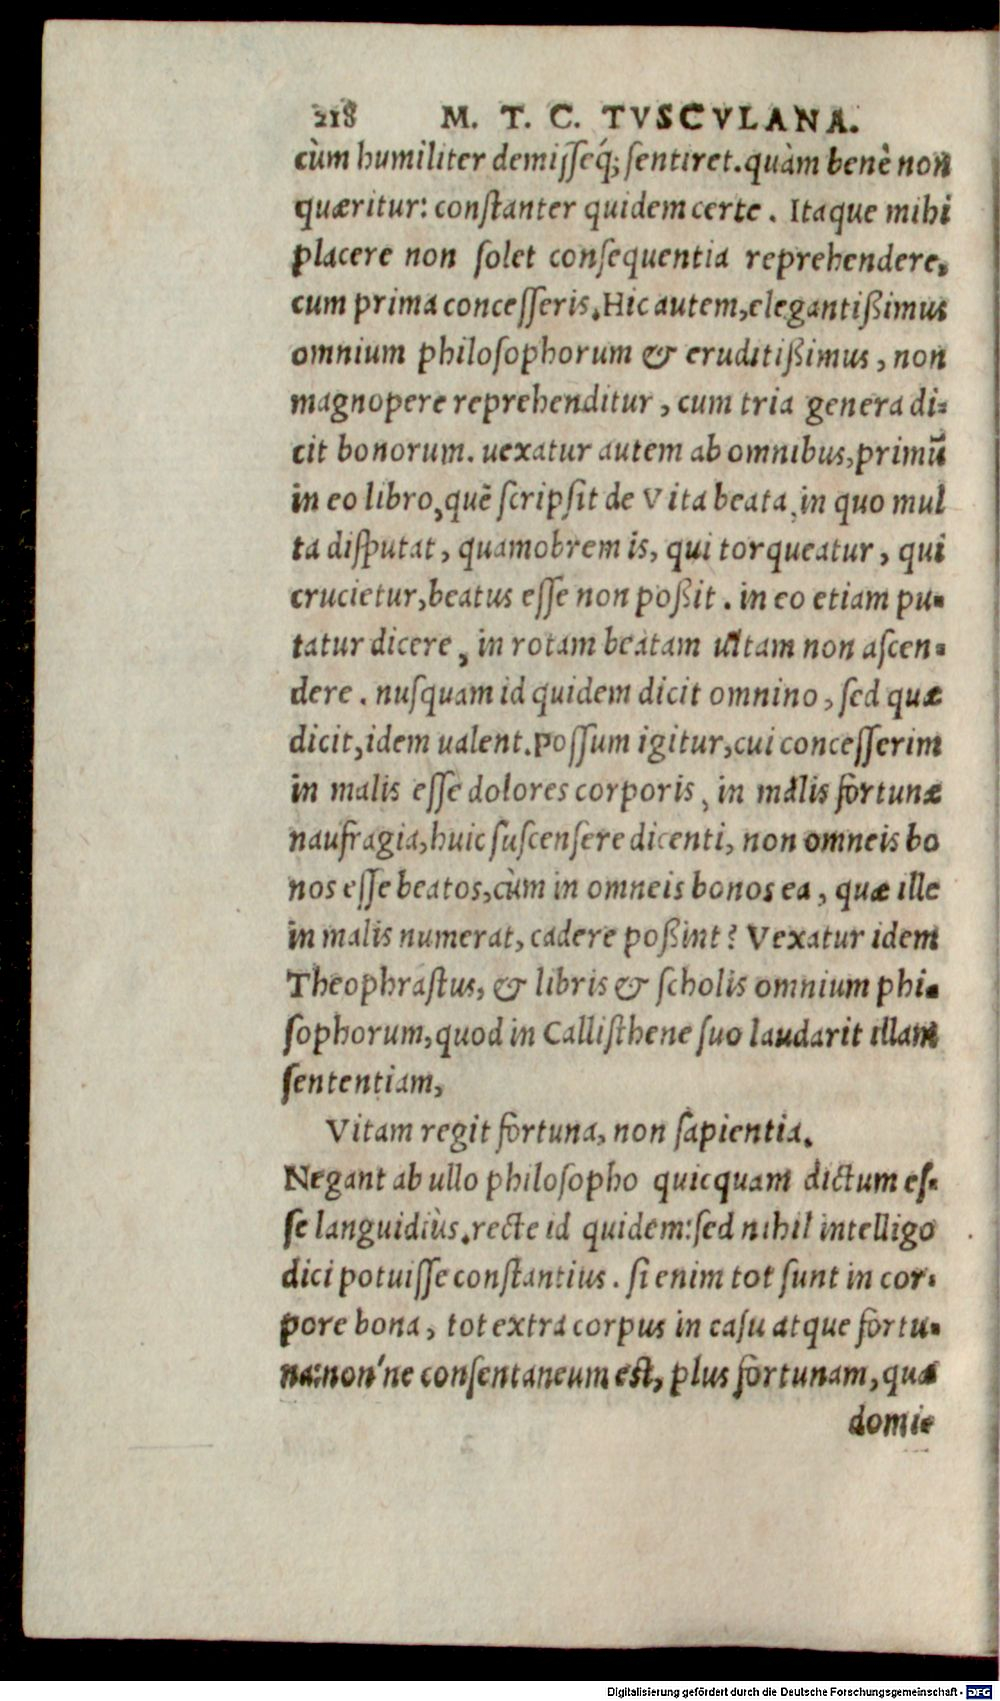 218 M. T. C. TVSCVLANA.
cùm humiliter demisseq́; sentiret. quàm benè non
quæritur: constanter quidem certe. Itaque mihi
placere non solet consequentia reprehendere,
cum prima concesseris. Hic autem, elegantißimus
omnium philosophorum & eruditißimus, non
magnopere reprehenditur, cum tria genera di-
cit bonorum. uexatur autem ab omnibus, primũ
in eo libro, quẽ scripsit de Vita beata, in quo mul
ta disputat, quamobrem is, qui torqueatur, qui
crucietur, beatus esse non poßit. in eo etiam pu-
tatur dicere, in rotam beatam uitam non ascen-
dere. nusquam id quidem dicit omnino, sed quæ
dicit, idem ualent. Possum igitur, cui concesserim
in malis esse dolores corporis, in malis fortunæ
naufragia, huic suscensere dicenti, non omneis bo
nos esse beatos, cùm in omneis bonos ea, quæ ille
in malis numerat, cadere poßint? Vexatur idem
Theophrastus, & libris & scholis omnium phi-
sophorum, quod in Callisthene suo laudarit illam
sententiam,
Vitam regit fortuna, non sapientia.
Negant ab ullo philosopho quicquam dictum es-
se languidiùs. recte id quidem: sed nihil intelligo
dici potuisse constantius. si enim tot sunt in cor-
pore bona, tot extra corpus in casu atque fortu-
na: non'ne consentaneum est, plus fortunam, quæ
domi-
Digitalisierung gefördert durch die Deutsche Forschungsgemeinschaft - DFG